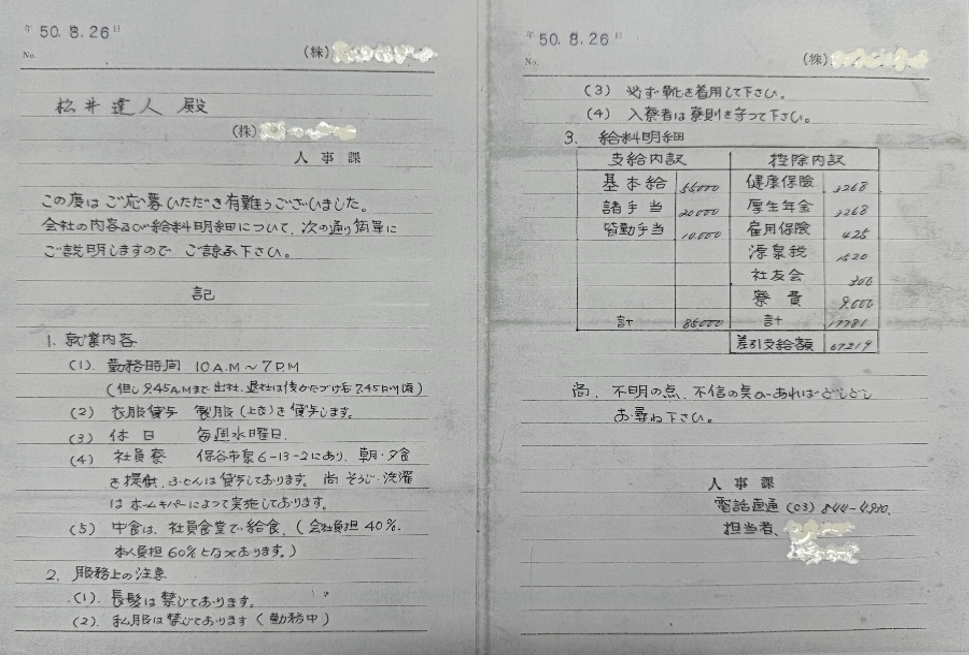 年 50. 8. 26 日
No.
(株)
松井達人 殿
(株)
人事課
この度はご応募いただき有難うございました。
会社の内容及び給料明細について、次の通り簡単に
ご説明しますので ご諒承下さい。
記
1. 就業内容
(1). 勤務時間 10A.M〜7P.M
(但し9.45A.Mまで出社、退社は後かたづけ后7.45P.M頃)
(2) 衣服貸与 製服(上衣)を貸与します。
(3) 休日 毎週水曜日.
(4) 社員寮 保谷市泉6-13-2にあり、朝・夕食
を提供、ふとんは貸与しております。尚 そうじ・洗濯
はホームキパーによって実施しております。
(5) 中食は、社員食堂で給食、(会社負担40%.
本人負担60%となっております。)
2. 服務上の注意
(1). 長髪は禁じております。
(2). 私服は禁じております(勤務中)
年 50. 8. 26 日
No.
(株)
(3) 必ず靴を着用して下さい。
(4) 入寮者は寮則を守って下さい。
3. 給料明細
支給内訳 控除内訳
基本給 55000 健康保険 3268
諸手当 20000 厚生年金 3268
皆勤手当 10,000 雇用保険 425
源泉税 1520
社友会 300
寮費 9,000
計 85000 計 17781
差引支給額 67219
尚、不明の点、不信の点があればどしどし
お尋ね下さい。
人事課
電話直通 (03) 844-4920.
担当者、